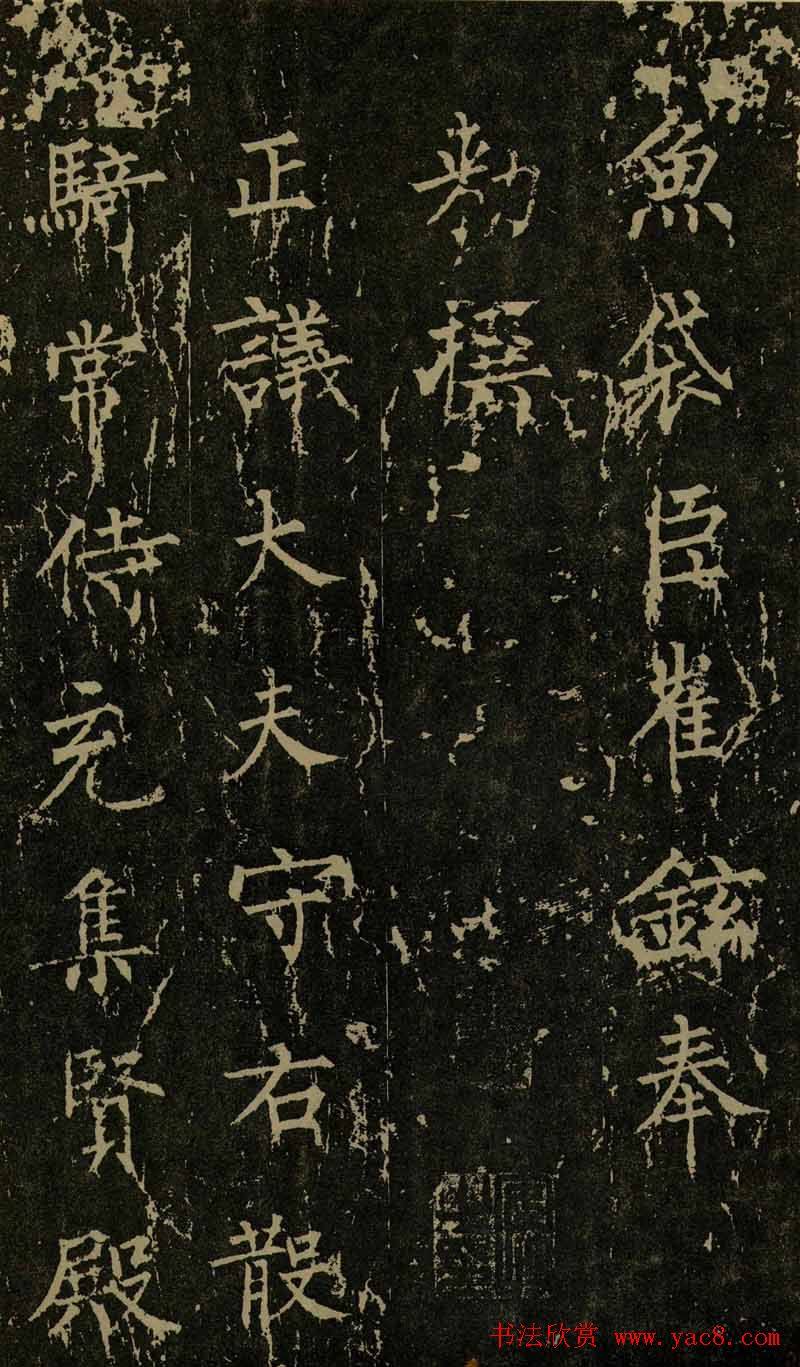 魚袋臣崔鉉奉
勑撰
正議大夫守右散
騎常侍充集賢殿
书法欣赏 www.yac8.com